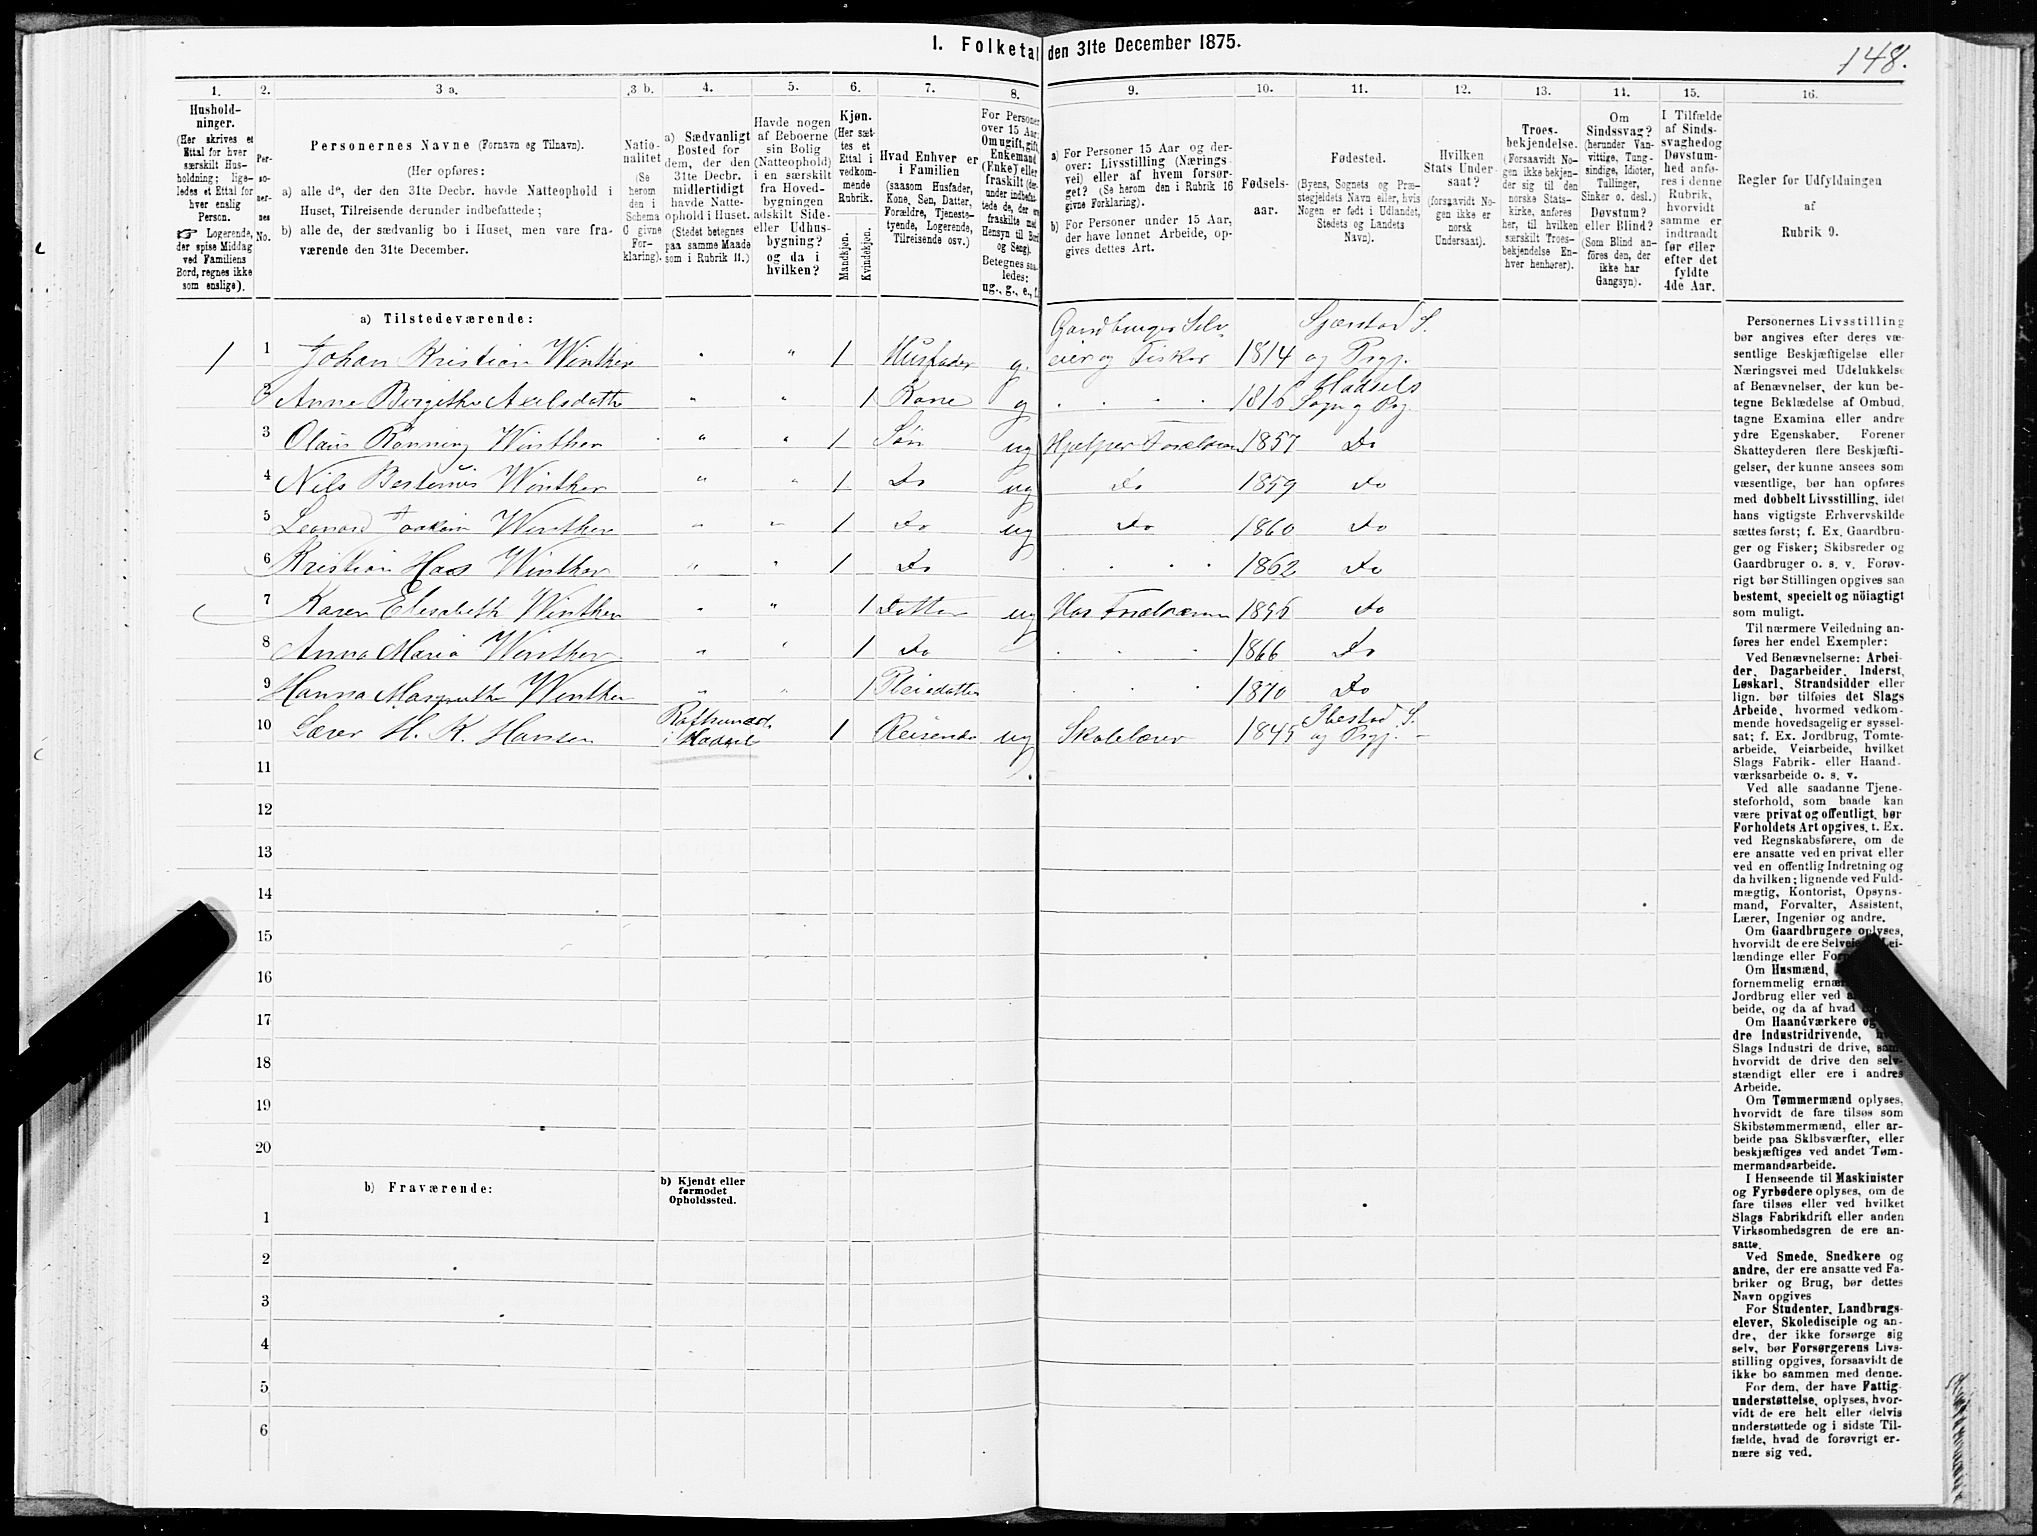 I. Folketal den 31te December 1875.
148.
1.
Hushold-
ninger.
(Her skrives et
Ettal for hver
særskilt Hus-
holdning; lige-
ledes et Ettal for
hver enslig
Person.
☞ Logerende,
der spise Middag
ved Familiens
Bord, regnes ikke
som enslige).
2.
Per-
so-
ner-
nes
No.
3 a.
Personernes Navne (Fornavn og Tilnavn).
(Her opføres:
a) alle de, der den 31te Decbr. havde Natteophold i
Huset, Tilreisende derunder indbefattede;
b) alle de, der sædvanlig bo i Huset, men vare fra-
værende den 31te December.
3 b.
Natio-
nalitet
(Se
herom
den i
Schema
C givne
For-
klaring).
4.
a) Sædvanligt
Bosted for
dem, der den
31te Decbr.
midlertidigt
havde Natte-
ophold i Huset.
(Stedet betegnes
paa samme Maade
som i Rubrik 11.)
5.
Havde nogen
af Beboerne
sin Bolig
(Natteophold)
i en særskilt
fra Hoved-
bygningen
adskilt Side-
eller Udhus-
bygning?
og da i
hvilken?
6.
Kjøn.
(Her sæt-
tes et
Ettal i
vedkom-
mende
Rubrik.
Mandkjøn.
Kvindekjøn.
7.
Hvad Enhver er
i Familien
(saasom Husfader,
Kone, Søn, Datter,
Forældre, Tjeneste-
tyende, Logerende,
Tilreisende osv.)
8.
For Personer
over 15 Aar:
Om ugift, gift,
Enkemand
(Enke) eller
fraskilt (der-
under indbefat-
tede de, der ere
fraskilte med
Hensyn til Bord
og Seng).
Betegnes saa-
ledes:
ug., g., e., f.
9.
a) For Personer 15 Aar og der-
over: Livsstilling (Nærings-
vei) eller af hvem forsør-
get? (Se herom den i Rubrik 16
givne Forklaring).
b) For Personer under 15 Aar,
der have lønnet Arbeide, op-
gives dettes Art.
10.
Fødsels-
aar.
11.
Fødested.
(Byens, Sognets og Præ-
stegjeldets Navn eller, hvis
Nogen er født i Udlandet,
Stedets og Landets
Navn).
12.
Hvilken
Stats Under-
saat?
(forsaavidt No-
gen ikke er
norsk
Undersaat).
13.
Troes-
bekjendelse.
(Forsaavidt No-
gen ikke bekjen-
der sig til den
norske Stats-
kirke, anføres
her, til hvilken
særskilt Troes-
bekjendelse En-
hver henhører).
14.
Om
Sindssvag?
(herunder Van-
vittige, Tung-
sindige, Idioter,
Tullinger,
Sinker o. desl.)
Døvstum?
eller Blind?
(Som Blind an-
føres den, der
ikke har
Gangsyn).
15.
I Tilfælde
af Sinds-
svaghed og
Døvstum-
hed anfø-
res i denne
Rubrik,
hvorvidt
samme er
indtraadt
før eller
efter det
fyldte
4de Aar.
16.
Regler for Udfyldningen
af
Rubrik 9.
a) Tilstedeværende:
1 1 Johan Kristian Winther " " 1 Husfader g. Gaardbruger Selv- eier og Fisker 1814 Sjærstad S. og Prgj.
2 Anne Birgithe Axelsdatter " " 1 Kone g 1816 Hadsels Sogn og Prg.
3 Olaus Rønning Winther " " 1 Søn ug Hjælper Forældrene 1857 Do
4 Nils Winther " " 1 Do ug Do 1859 Do
5 Leonard Joakim Winther " " 1 Do ug Do 1860 Do
6 Kristian Haas Winther " " 1 Do 1862 Do
7 Karen Elisabeth Winther " " 1 Datter ug Hos Forældrene 1856 Do
8 Anna Maria Winther " " 1 Do 1866 Do
9 Hanna Margreth Winther " " 1 Pleiedatter 1870 Do
10 Lærer H. K. Hansen Raftsundet i Hadsel 1 Reisende ug Skolelærer 1845 Ibestad S. og Prgj.
11
12
13
14
15
16
17
18
19
20
b) Fraværende:
b) Kjendt eller
formodet
Opholdssted.
1
2
3
4
5
6
Personernes Livsstilling
bør angives efter deres væ-
sentlige Beskjæftigelse eller
Næringsvei med Udelukkelse
af Benævnelser, der kun be-
tegne Beklædelse af Ombud,
tagne Examina eller andre
ydre Egenskaber. Forener
Skatteyderen flere Beskjæfti-
gelser, der kunne ansees som
væsentlige, bør han opføres
med dobbelt Livsstilling, idet
hans vigtigste Erhvervskilde
sættes først; f. Ex. Gaardbru-
ger og Fisker; Skibsreder og
Gaardbruger o. s. v. Forøv-
rigt bør Stillingen opgives saa
bestemt, specielt og nöiagtigt
som muligt.
Til nærmere Veiledning an-
føres her endel Exempler:
Ved Benævnelserne: Arbei-
der, Dagarbeider, Inderst,
Løskarl, Strandsidder eller
lign. bør tilføies det Slags
Arbeide, hvormed vedkom-
mende hovedsagelig er syssel-
sat; f. Ex. Jordbrug, Tomte-
arbeide, Veiarbeide, hvilket
Slags Fabrik- eller Haand-
værksarbeide o. s. v.
Ved alle saadanne Tjene-
steforhold, som baade kan
være privat og offentligt, bør
Forholdets Art opgives, t. Ex.
ved Regnskabsførere, om de
ere ansatte ved en privat eller
ved en offentlig Indretning og
da hvilken; lignende ved Fuld-
mægtig, Kontorist, Opsyns-
mand, Forvalter, Assistent,
Lærer, Ingeniør og andre.
Om Gaardbrugere oplyses,
hvorvidt de ere Selveiere, Lei-
lændinge eller
Om Husmænd,
fornemmelig
Jordbrug eller ved
beide, og da af hvad
Om Haandværkere og
dre Industridrivende,
Slags Industri de drive, samt
hvorvidt de drive den selv-
stændigt eller ere i andres
Arbeide.
Om Tømmermænd oplyses,
hvorvidt de fare tilsøs som
Skibstømmermænd, eller ar-
beide paa Skibsværfter, eller
beskjæftiges ved andet Tøm-
mermandsarbeide.
I Henseende til Maskinister
og Fyrbødere oplyses, om de
fare tilsøs eller ved hvilket
Slags Fabrikdrift eller anden
Virksomhedsgren de ere an-
satte.
Ved Smede, Snedkere og
andre, der ere ansatte ved Fa-
briker og Brug, bør dettes
Navn opgives
For Studenter, Landbrugs-
elever, Skoledisciple og an-
dre, der ikke forsørge sig
selv, bør Forsørgerens Livs-
stilling opgives, forsaavidt de
ikke bo sammen med denne.
For dem, der have Fattig-
understøttelse, oplyses, hvor-
vidt de ere helt eller delvis
understøttede og i sidste Til-
fælde, hvad de forøvrigt er-
nære sig ved.